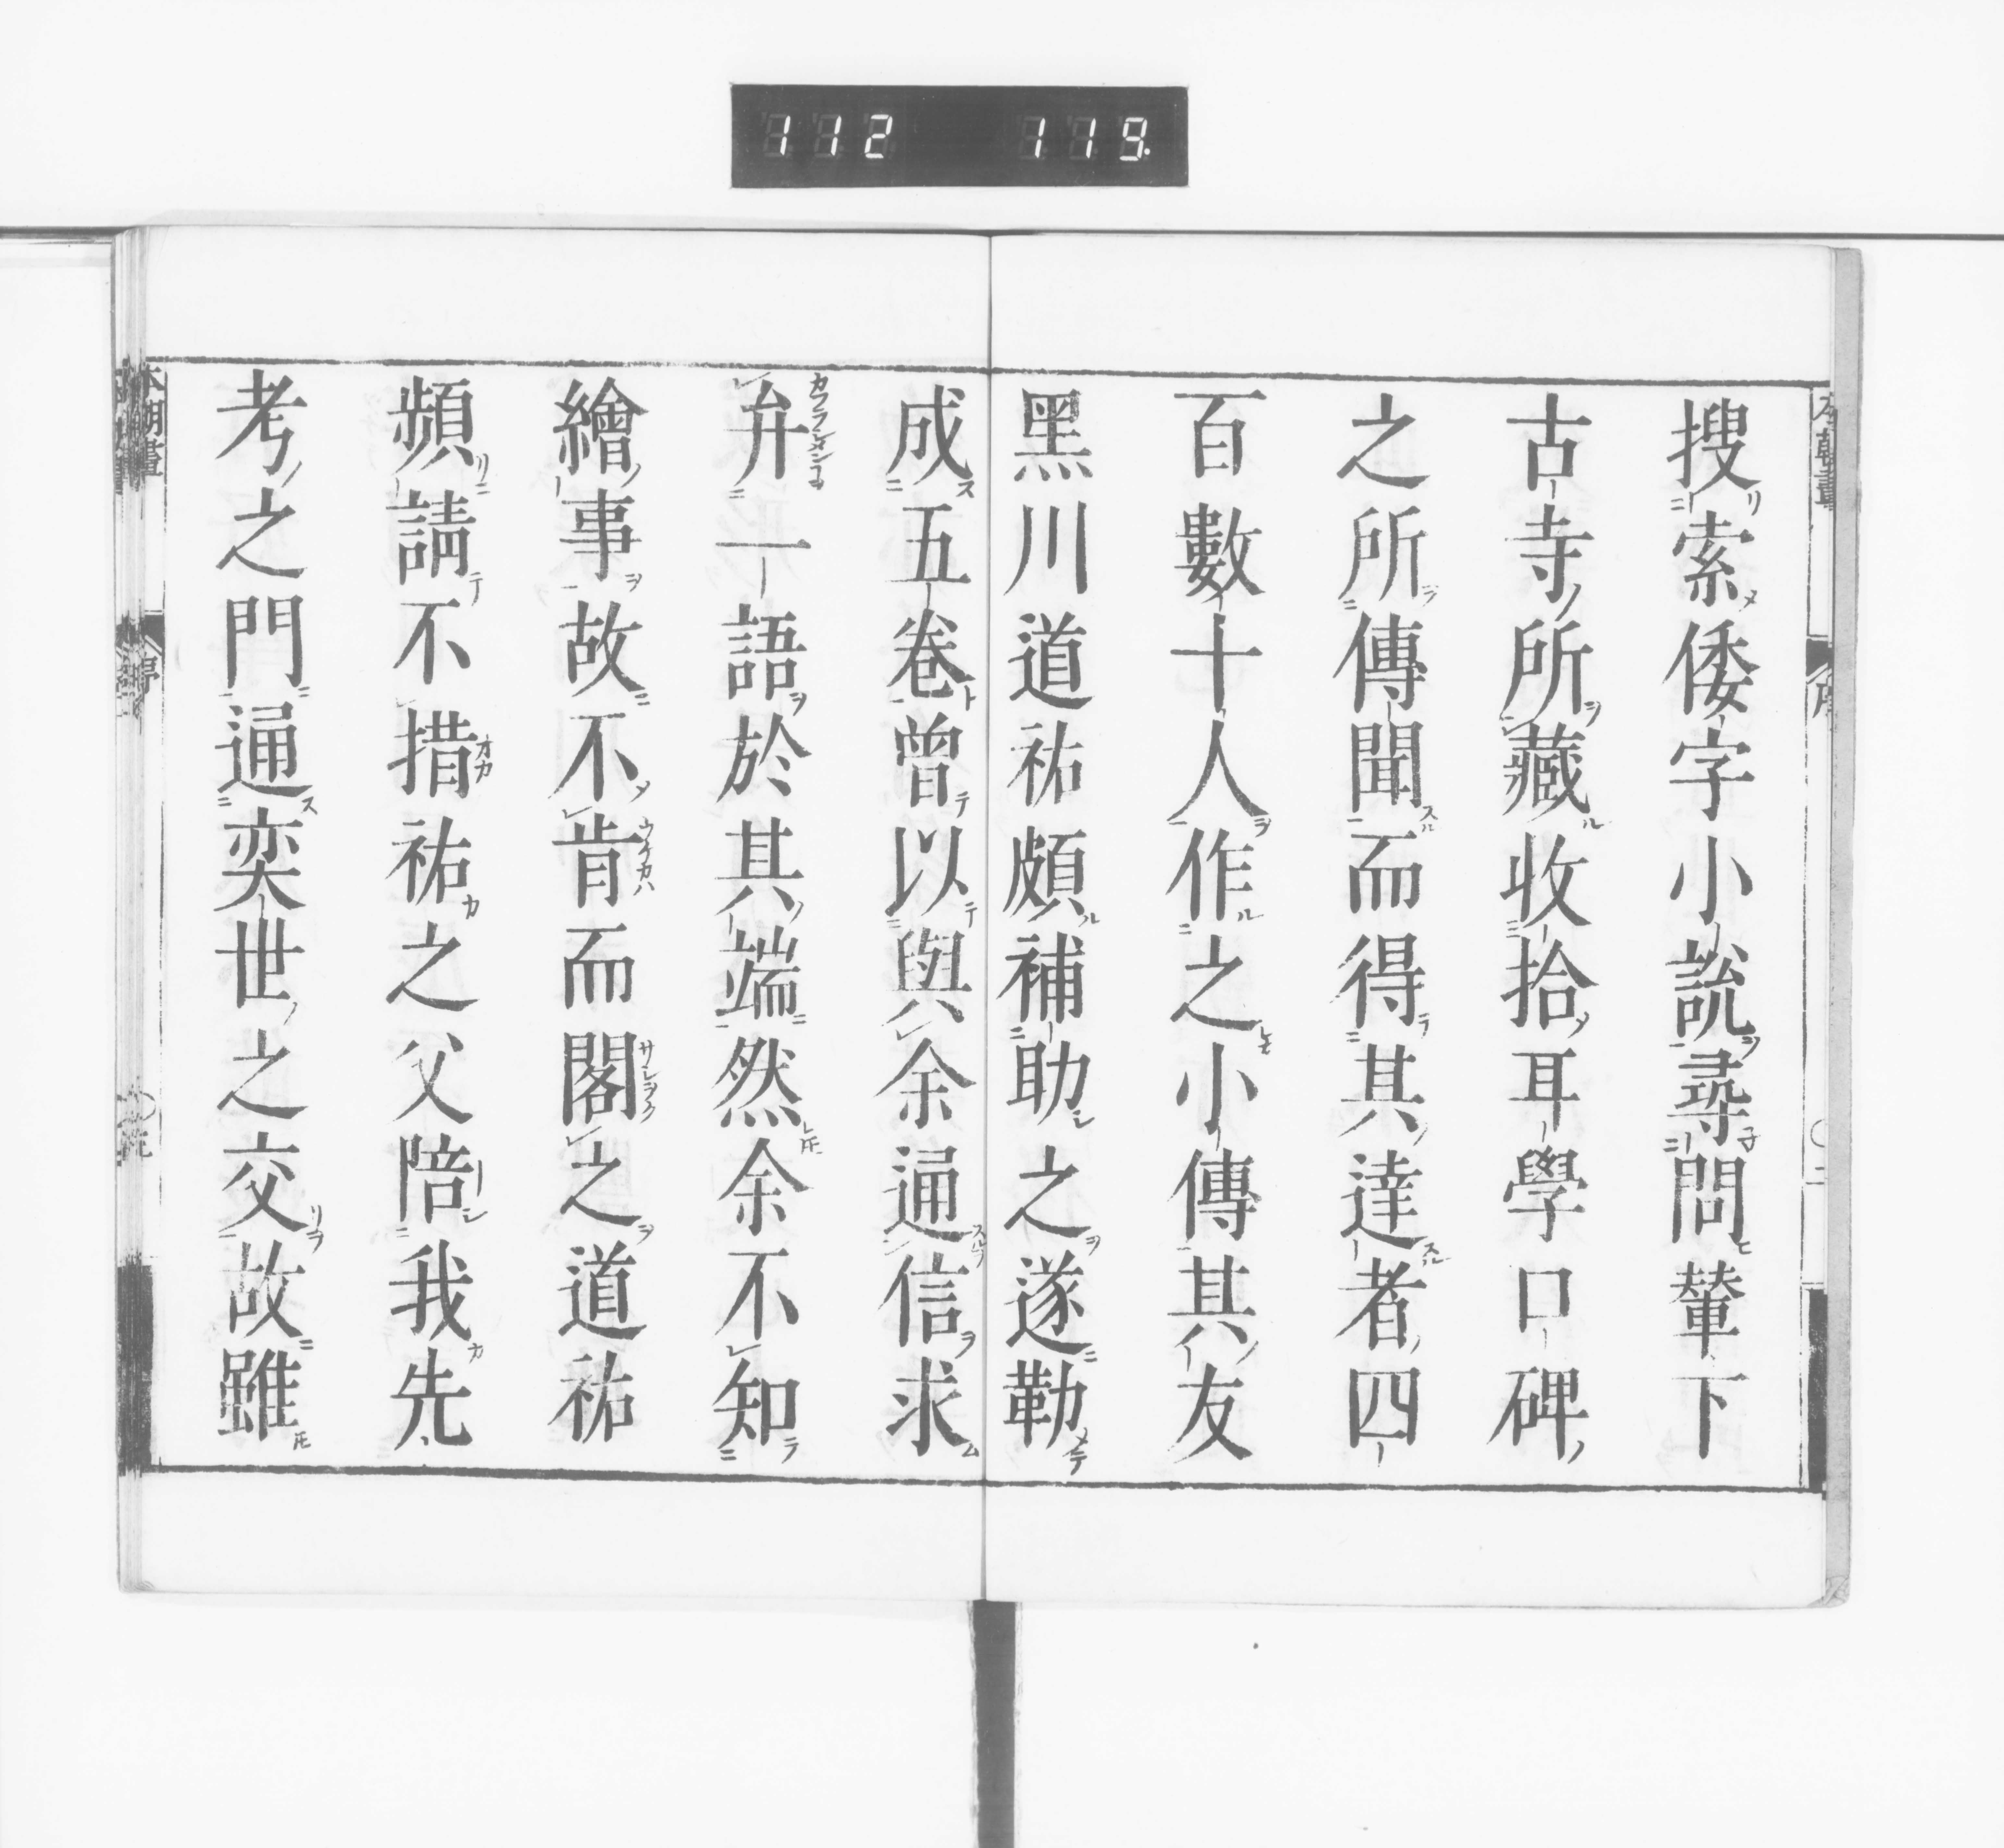 112 119
搜索倭字小說尋問輦下
古寺所藏收拾耳學口碑
之所傳聞而得其達者四
百數十人作之小傳其友
黑川道祐頗補助之遂勒
成五卷曾以與余通信求
弁一語於其端然余不知
繪事故不肯而閣之道祐
頻請不措祐之父陪我先
考之門通奕世之交故雖
本朝畫
序